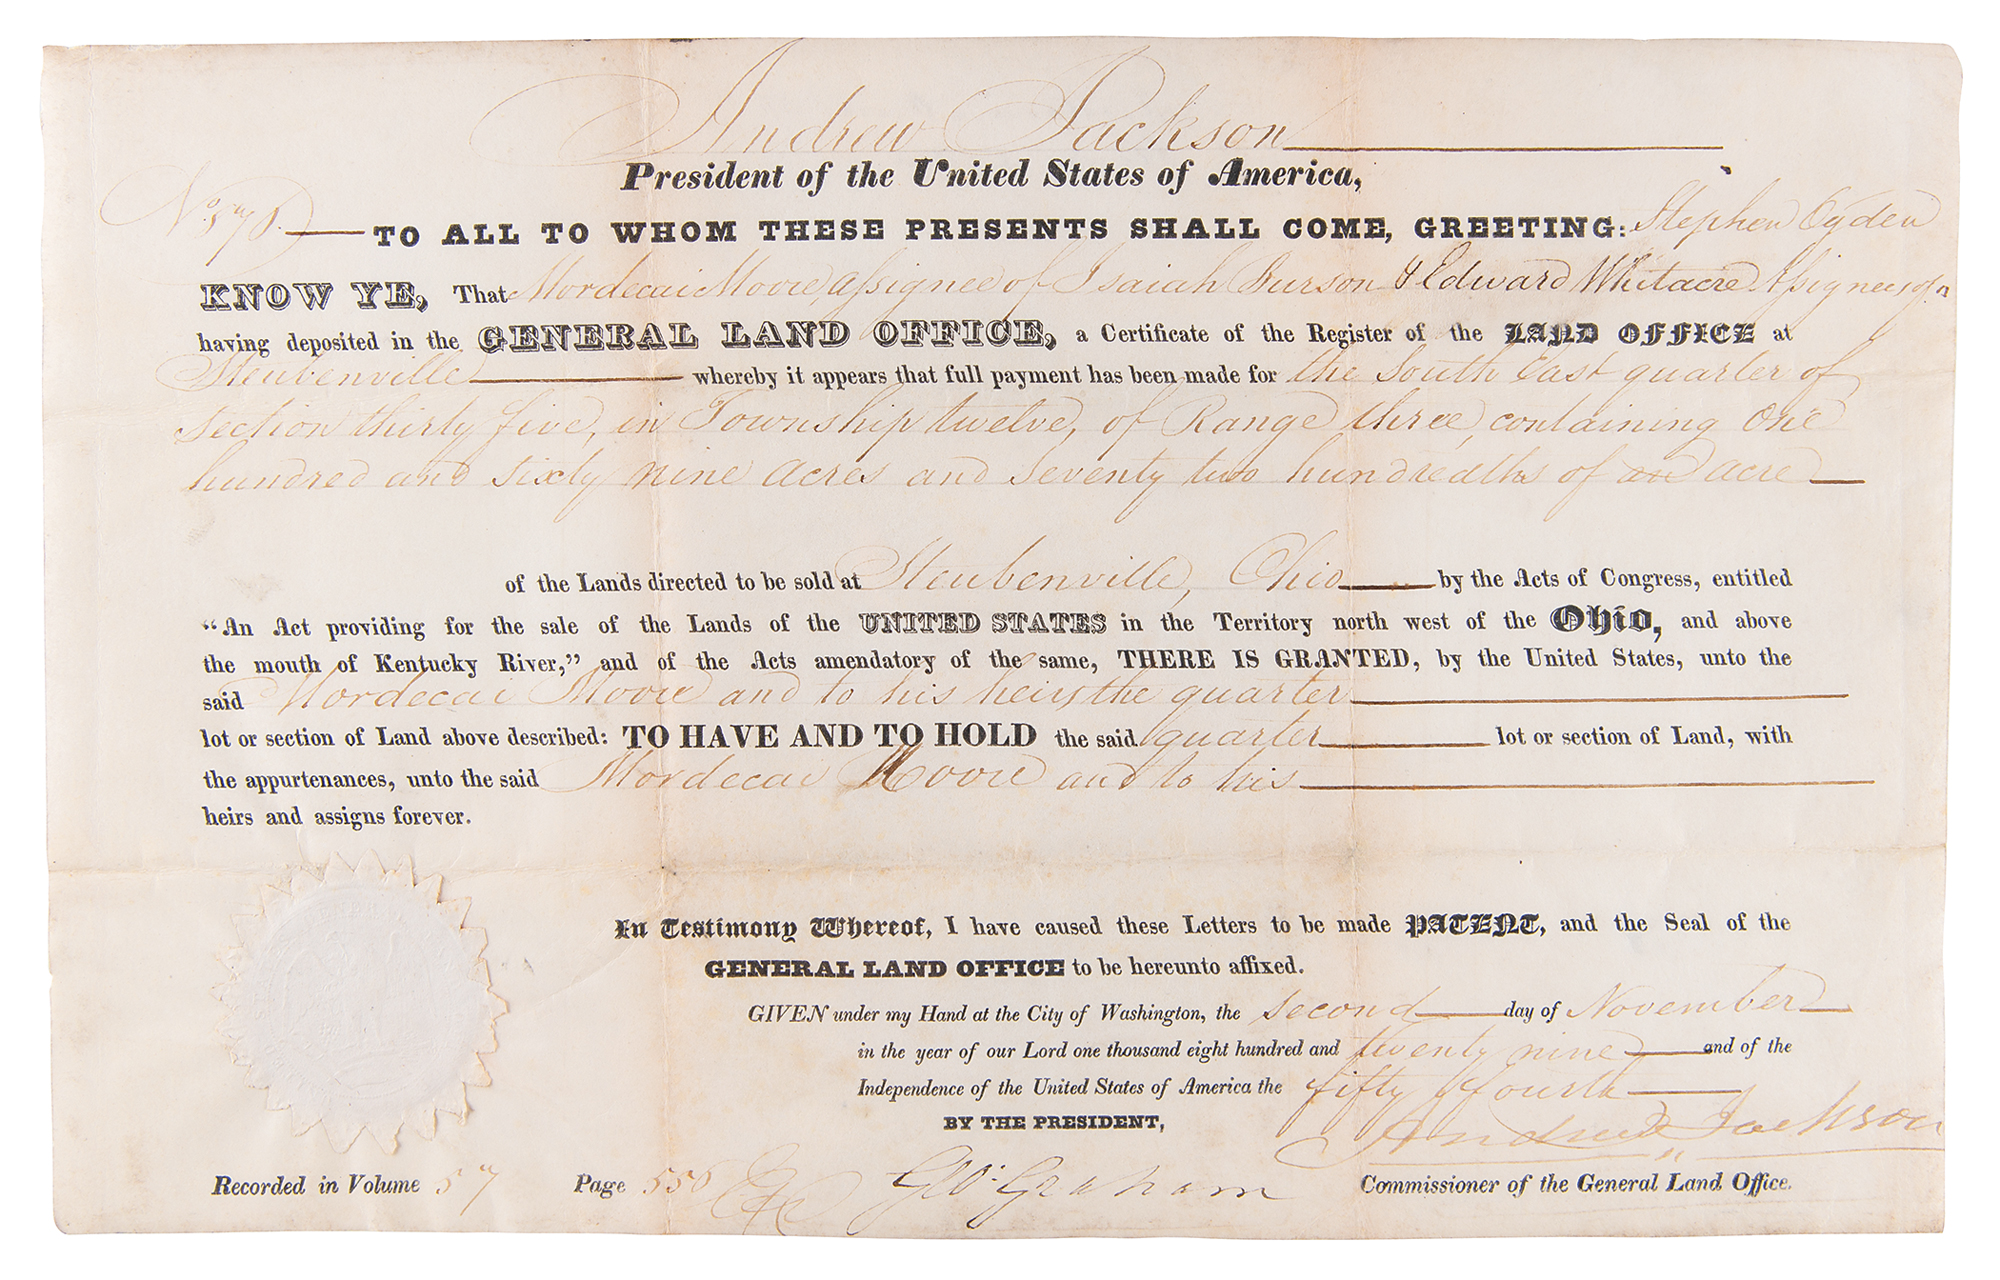 Andrew Jackson
President of the United States of America,
TO ALL TO WHOM THESE PRESENTS SHALL COME, GREETING: Stephen Ogden
KNOW YE, That Mordecai Moore, assignee of Isaiah Burson & Edward Whitacre Assignees of
having deposited in the GENERAL LAND OFFICE, a Certificate of the Register of the LAND OFFICE at
Steubenville whereby it appears that full payment has been made for the South East quarter of
section thirty five, in Township twelve, of Range three, containing One
hundred and sixty nine acres and seventy two hundredths of an acre
of the Lands directed to be sold at Steubenville, Ohio by the Acts of Congress, entitled
“An Act providing for the sale of the Lands of the UNITED STATES in the Territory north west of the Ohio, and above
the mouth of Kentucky River,” and of the Acts amendatory of the same, THERE IS GRANTED, by the United States, unto the
said Mordecai Moore and to his heirs, the quarter
lot or section of Land above described: TO HAVE AND TO HOLD the said quarter lot or section of Land, with
the appurtenances, unto the said Mordecai Moore and to his
heirs and assigns forever.
In Testimony Whereof, I have caused these Letters to be made PATENT, and the Seal of the
GENERAL LAND OFFICE to be hereunto affixed.
GIVEN under my Hand at the City of Washington, the second day of November
in the year of our Lord one thousand eight hundred and twenty nine and of the
Independence of the United States of America the fifty fourth
BY THE PRESIDENT, Andrew Jackson
Recorded in Volume 57 Page 550 Geo: Graham Commissioner of the General Land Office.